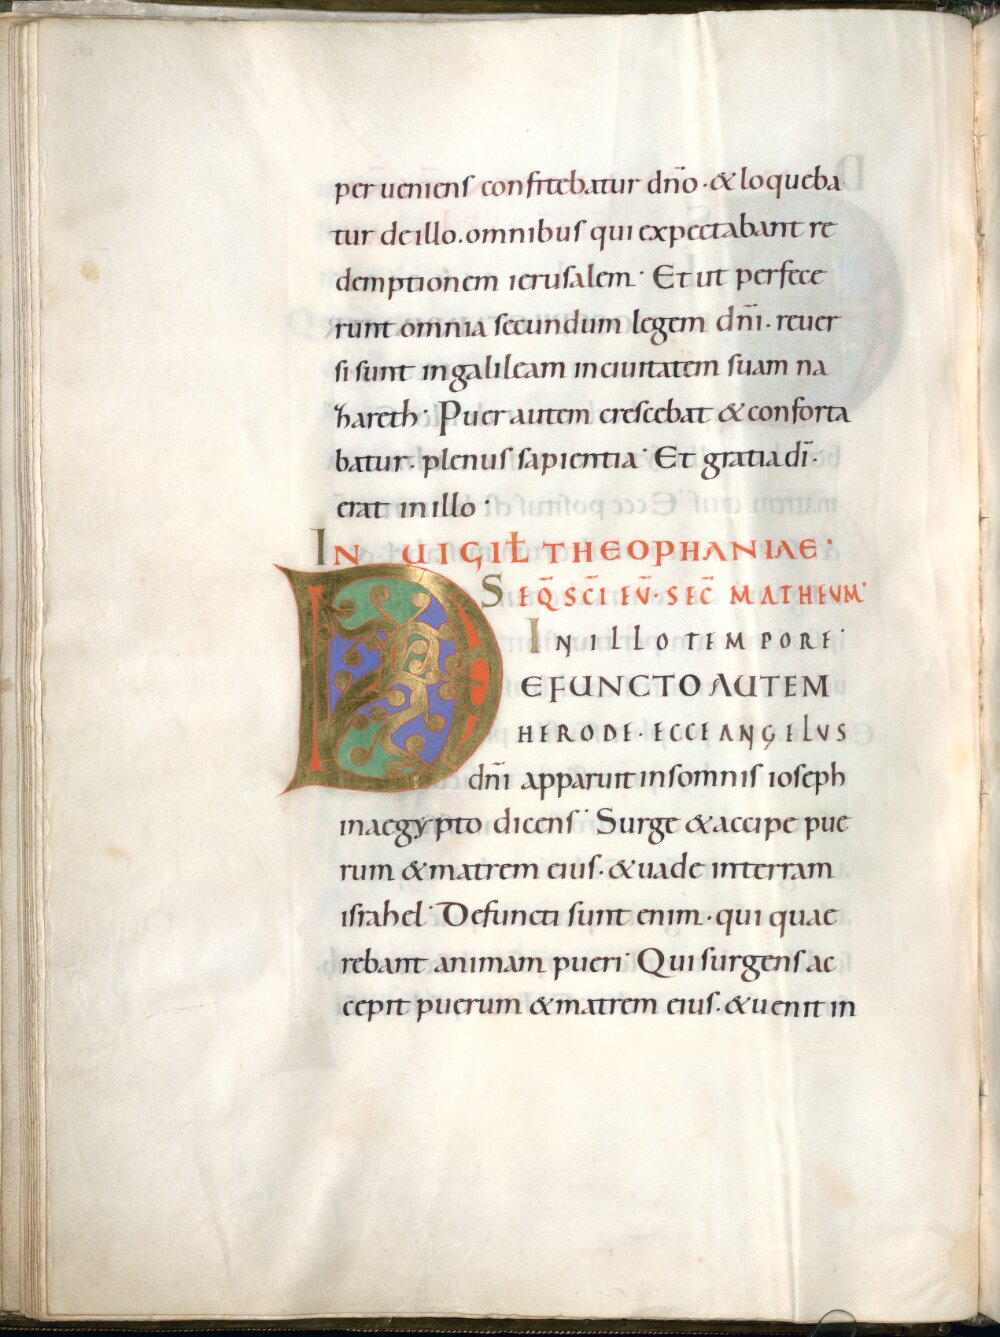 perueniens confitebatur dño · & loqueba
tur de illo. omnibus qui expectabant re
demptionem ierusalem · Et ut perfece
runt omnia secundum legem dñi · reuer
si sunt in galileam in ciuitatem suam na
hareth · Puer autem crescebat & conforta
batur · plenus sapientia · Et gratia dı̄ ·
erat in illo ·
IN UIGIŁ THEOPHANIAE ·
SEQ̄ SC̄I EŪ · SEC̄ MATHEUM ·
IN ILLO TEMPORE ·
DEFUNCTO AUTEM
HERODE · ECCE ANGELUS
dñi apparuit in somnis ioseph
in aegypto dicens · Surge & accipe pue
rum & matrem eius · & uade in terram
israhel · Defuncti sunt enim · qui quae
rebant animam pueri · Qui surgens ac
cepit puerum & matrem eius · & uenit in